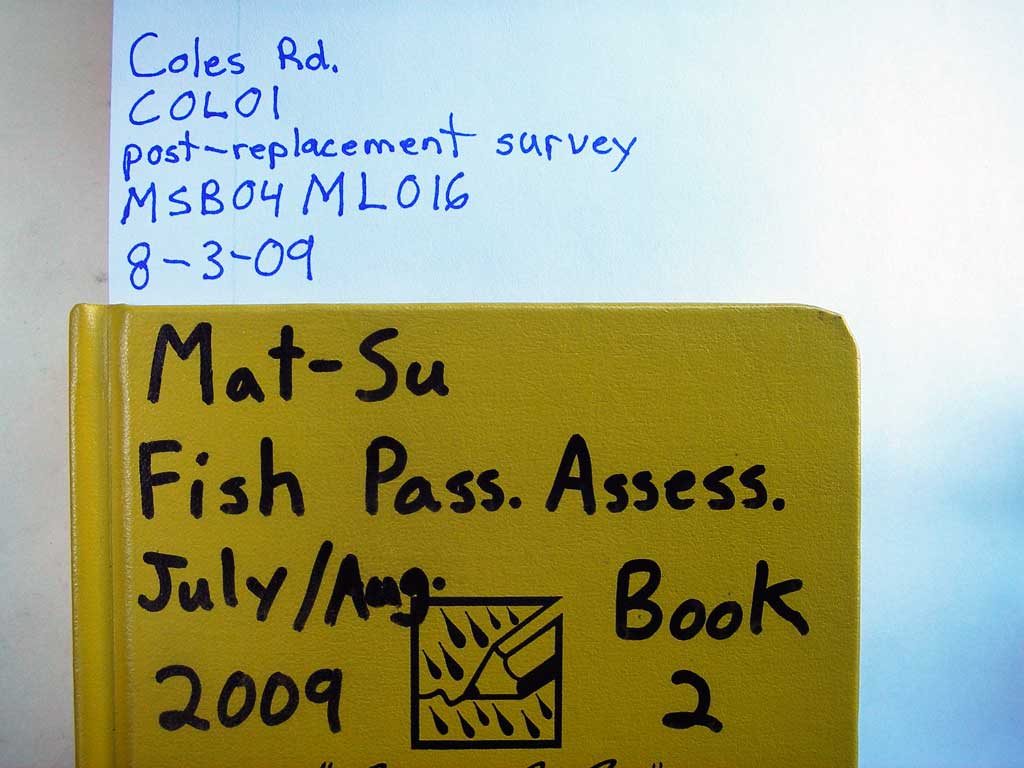 Coles Rd.
COL01
post-replacement survey
MSB04 ML016
8-3-09
Mat-Su
Fish Pass. Assess.
July/Aug. Book
2009 2